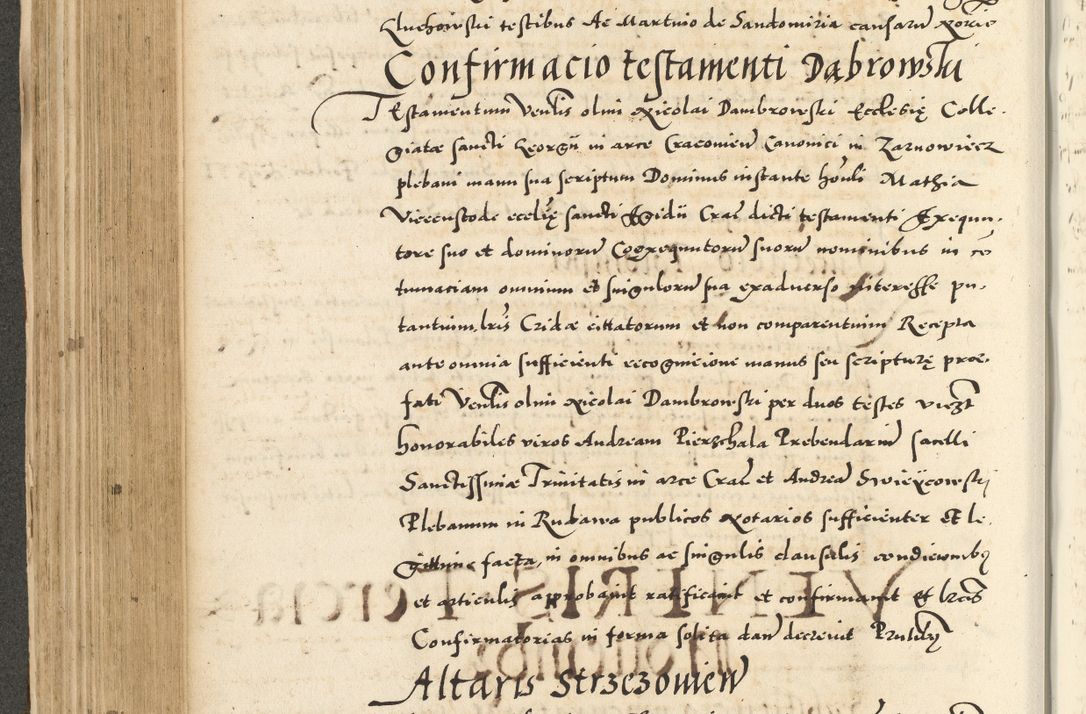 Kluchowski testibus Ac Martino de Sandomiria causarũ Notario
Confirmacio testamenti Dąbrowski
TEstamentum Venlis olim Nicolai Dambrowski Ecclesię Colle-
giatæ sancti Georgii in arce Cracovien Canonici in Zarnowiecz
plebani manu sua scriptum Dominus instante honli Mathia
Vicecustode ecclię sancti Egidii Crac dicti testamenti Exequu-
tore suo et dominorũ Coexequutorũ suorũ nominibus in cõ
tumaciam omnium et singulorũ sua exadverso interesse pu-
tantium, lris Cridæ cittatorum et non comparentium Recepta
ante omnia sufficienti recognicione manus seu scripturę prae-
fati Venlis olim Nicolai Dambrowski per duos testes vizt
honorabiles viros Andream Pierzchala Prebendariũ sacelli
Sanctissimæ Trinitatis in arce Crac et Andreã Swieycowski
Plebanum in Rubawa publicos Notarios sufficienter et le-
gittime facta, in omnibus ac singulis clausulis condicionibq
et articulis approbavit ratificavit et confirmavit et lras
Confirmatorias in forma solita dan decrevit Pntibq
Altaris Strzezowien